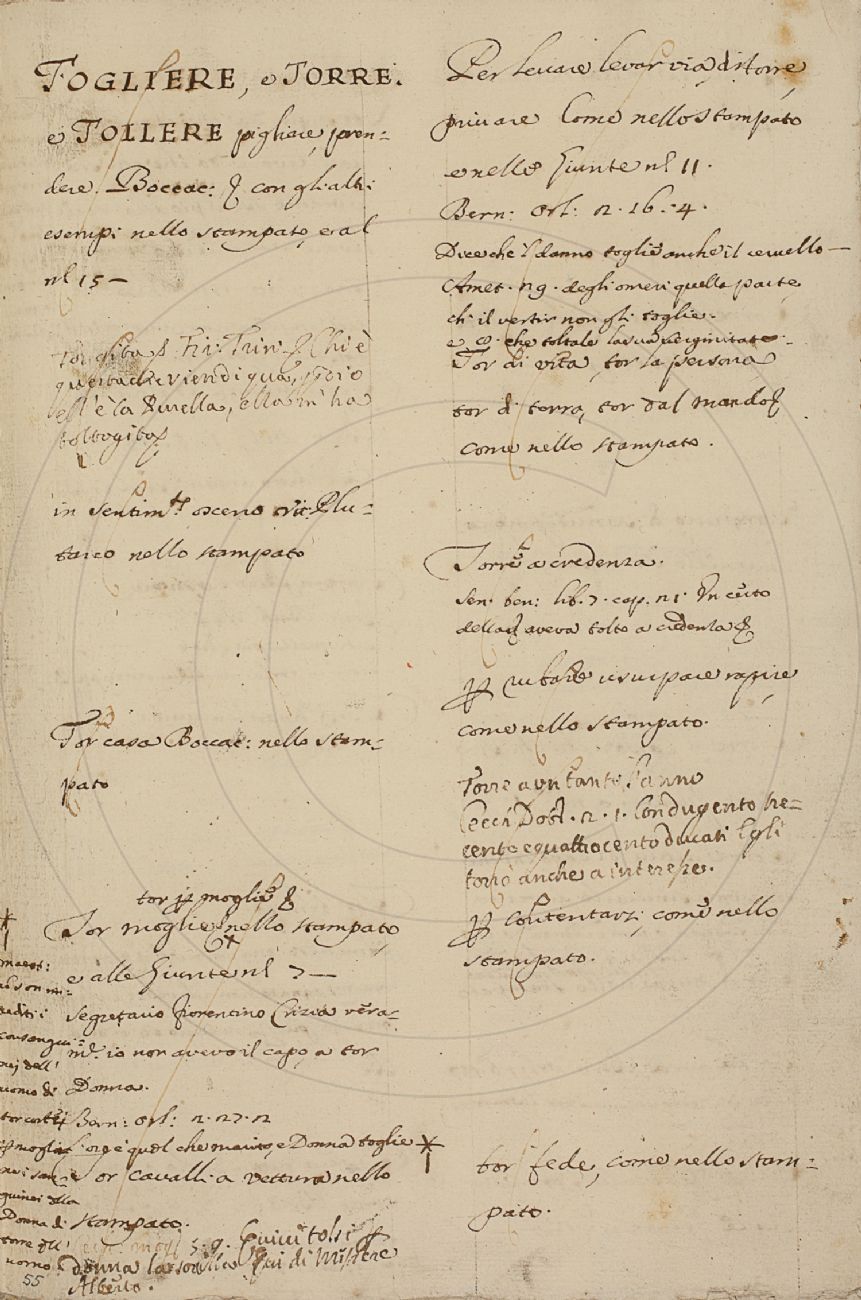 TOGLIERE, e TORRE.
e TOLLERE pigliare, pren=
dere. Boccac: con gl'altri
esempi nello stampato, e al
nl 15 —
Fir: Trin: Chi è
questa che vien di qua,
ell'è la Purella, ella m'ha
tolto gita
in sentimto osceno Plu=
tarco nello stampato
Tor casa Boccac: nello stam=
pato
tor moglie
Tor moglie nello stampato,
e alle Giunte nl 7 —
Segretario fiorentino Clizia vera=
me. io non avevo il capo, a tor
Donna.
Bern: Orl: 2. 27. 2
quel che marito, e Donna toglie
Tor cavalli a vettura nello
stampato.
5. 9. tolsi p
donna la sorella di
Alberto.
consangui=
nei dell'
uomo di
Donna di
uomo.
55
Per levare levar via, distorre,
privare Come nello Stampato
e nelle Giunte nl 11.
Bern: Orl: 2. 16. 4.
Dice che'l danno toglie anche il cervello —
Amet. 29. degli omeri quella parte,
ch: il vestir non gli toglie.
e che toltale la sua verginitate.
Tor di vita, tor la persona
tor di terra, tor dal mondo
come nello stampato.
Torre a credenza.
Sen: ben: lib. 7. cap. 21. Un certo
della aveva tolto a credenza
p rubare usurpare rapire
come nello stampato.
Torre a un tanto l'anno
Cecch. Dot. 2. 1. Con dugento tre=
cento e quattrocento ducati Egli
torrò anche a interesse.
p contentarsi, come nello
stampato.
tor fede, come nello stam=
pato.